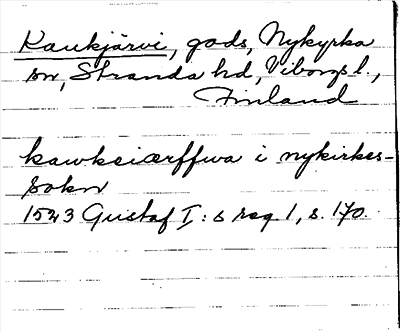 Kaukjärvi, gods, Nykyrka
sn, Stranda hd, Viborgs l.,
Finland
kawkeiærffwa i nykirkes-
sokn
1543 Gustaf I:s reg. 1, s. 170.